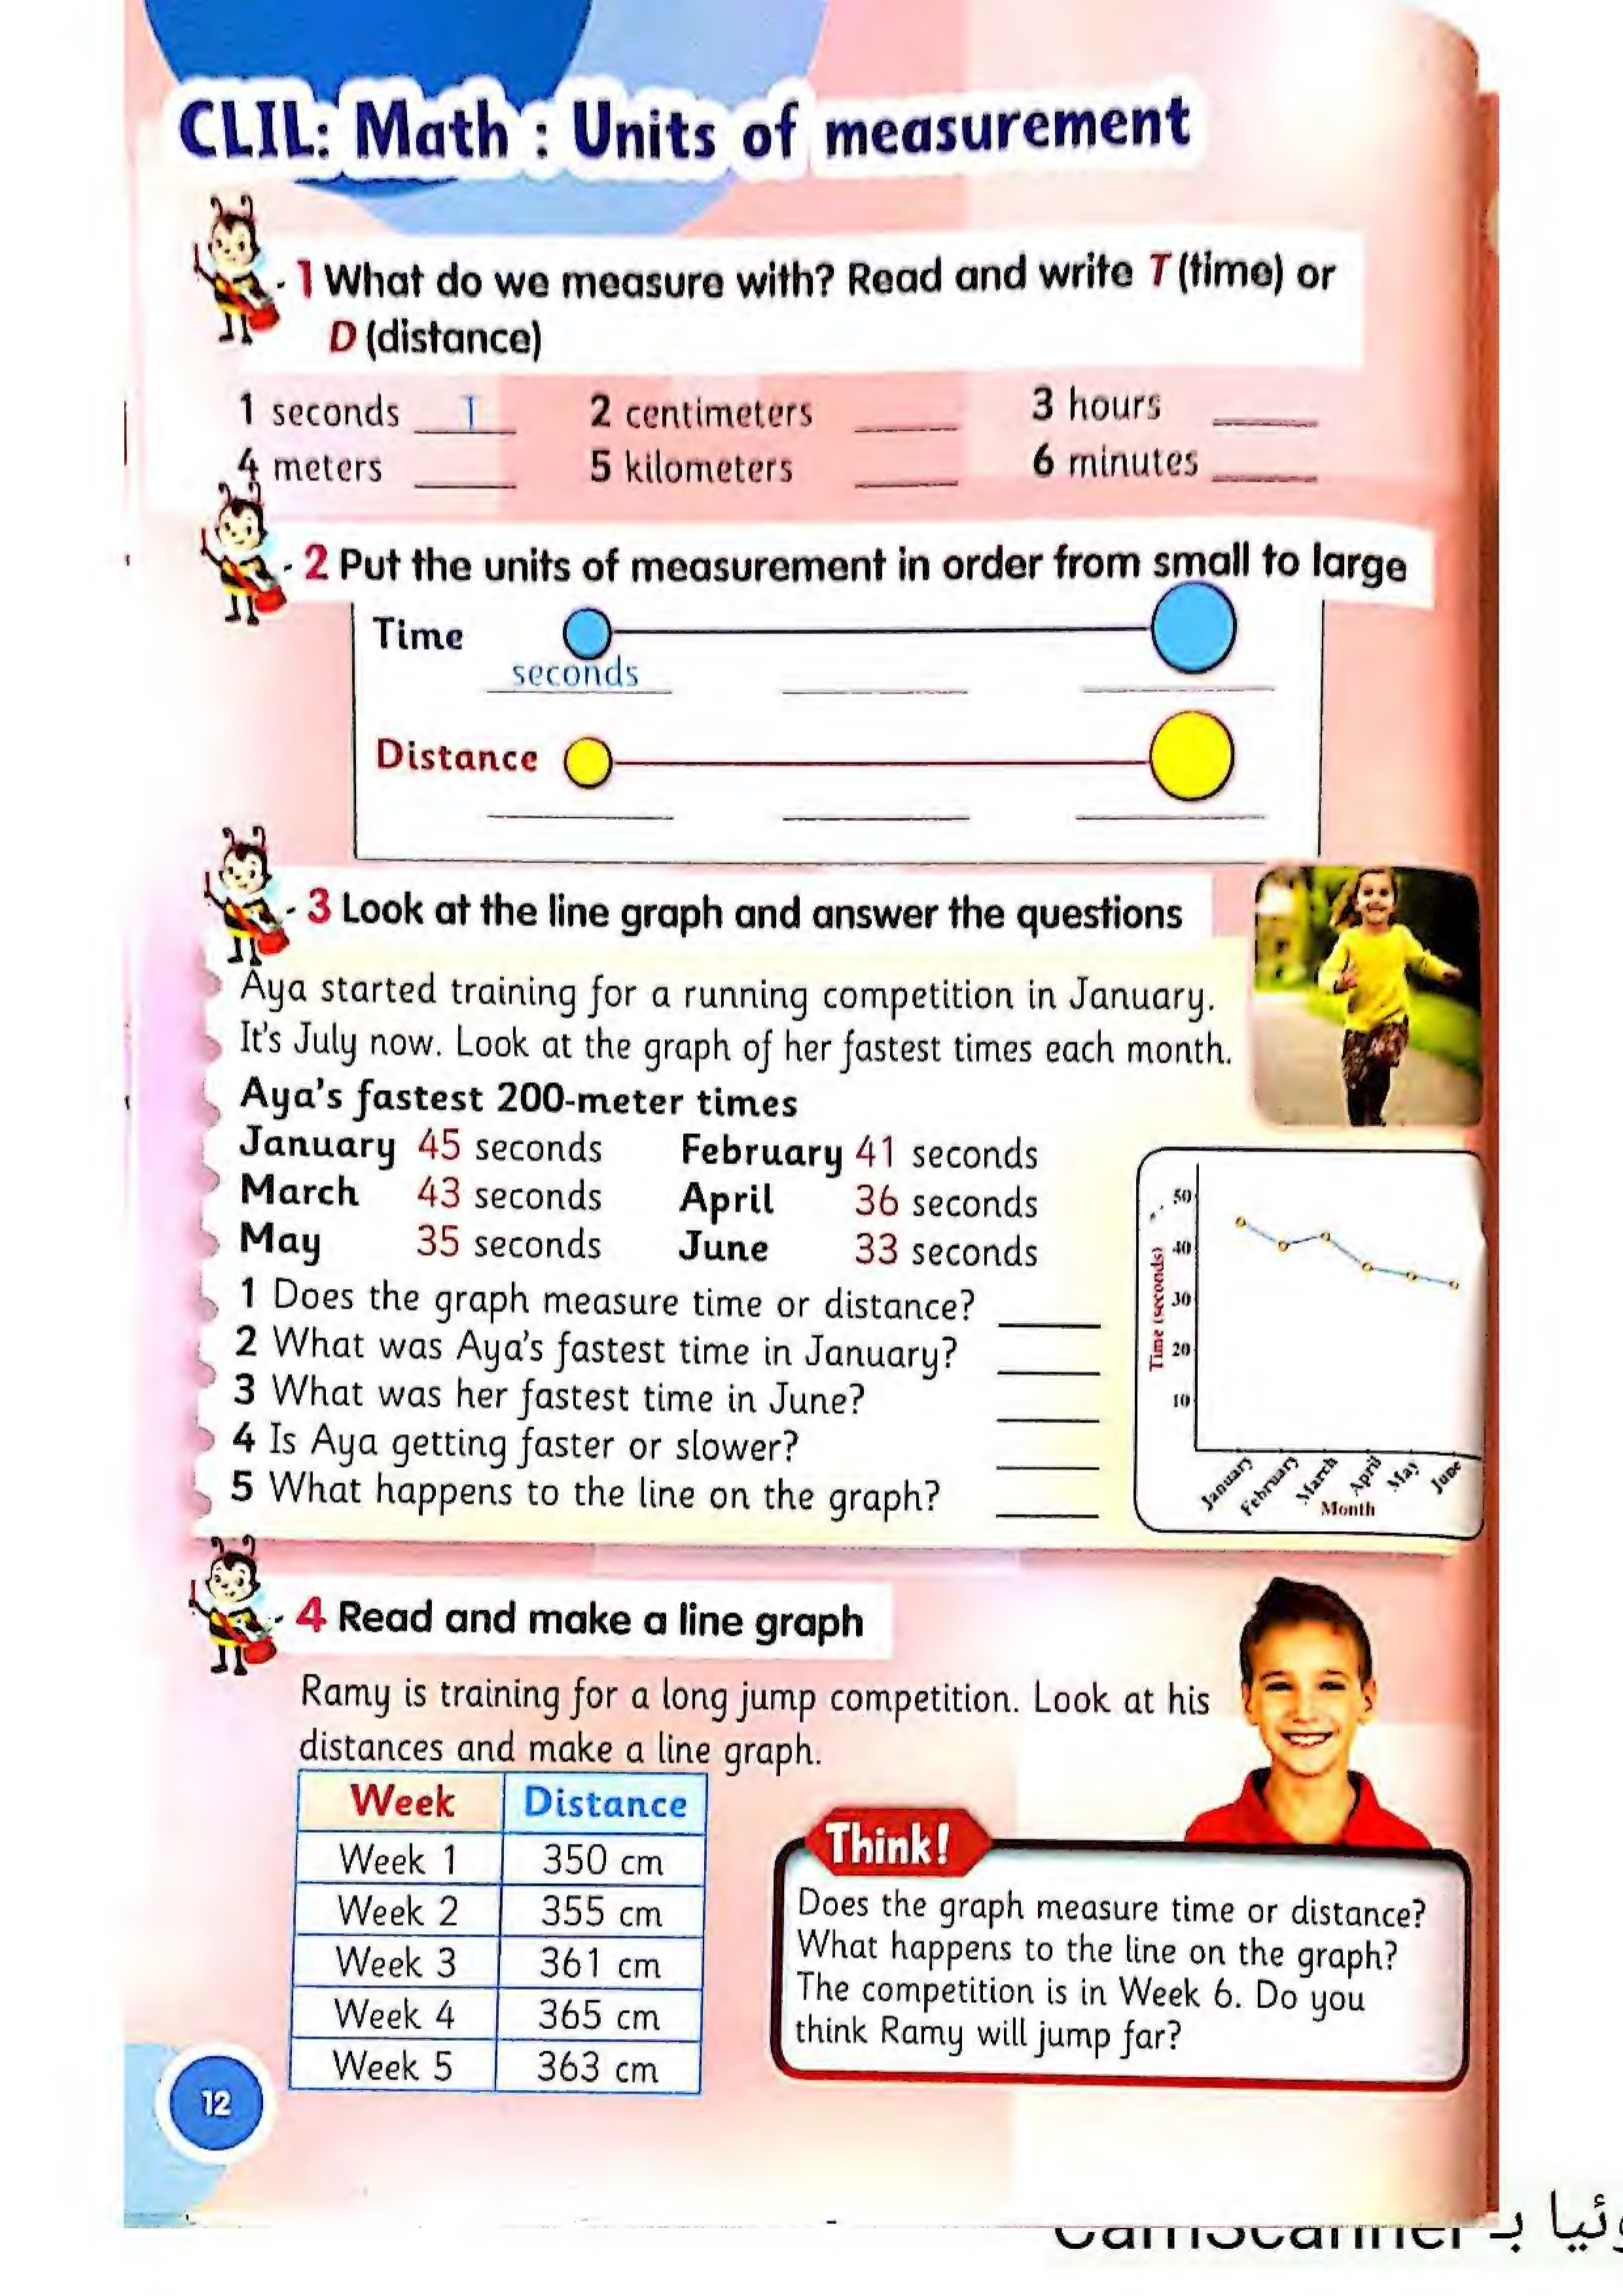 CLIL: Math : Units of measurement
1 What do we measure with? Read and write T (time) or
D (distance)
1 seconds T 2 centimeters ____ 3 hours ____
4 meters ____ 5 kilometers ____ 6 minutes ____
2 Put the units of measurement in order from small to large
Time
seconds
Distance
3 Look at the line graph and answer the questions
Aya started training for a running competition in January.
It's July now. Look at the graph of her fastest times each month.
Aya's fastest 200-meter times
January 45 seconds February 41 seconds
March 43 seconds April 36 seconds
May 35 seconds June 33 seconds
1 Does the graph measure time or distance? ____
2 What was Aya's fastest time in January? ____
3 What was her fastest time in June? ____
4 Is Aya getting faster or slower? ____
5 What happens to the line on the graph? ____
Time (seconds)
50
40
30
20
10
January February March April May June
Month
4 Read and make a line graph
Ramy is training for a long jump competition. Look at his
distances and make a line graph.
Week Distance
Week 1 350 cm
Week 2 355 cm
Week 3 361 cm
Week 4 365 cm
Week 5 363 cm
Think!
Does the graph measure time or distance?
What happens to the line on the graph?
The competition is in Week 6. Do you
think Ramy will jump far?
12
CamScanner بـ